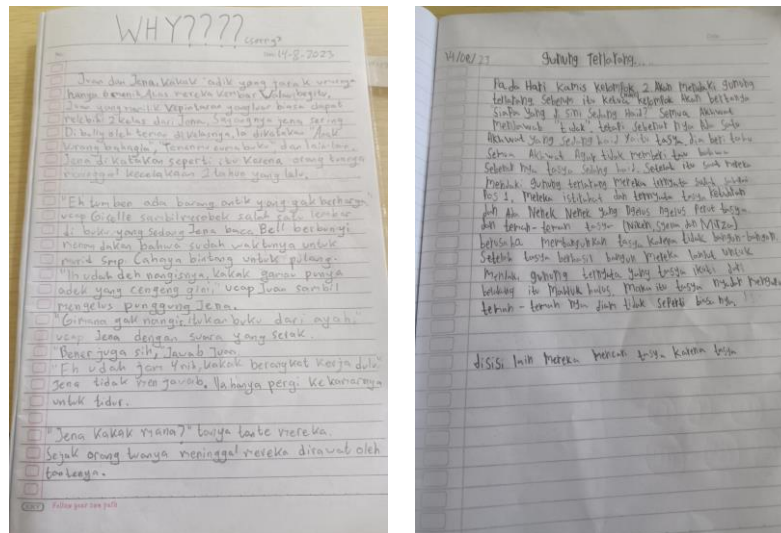 WHY????
Date: 14-8-2023
Juan dan Jena, kakak adik yang jarak umurnya
hanya 8 menit. Alias mereka kembar. Walau begitu,
Juan yang memiliki kepintaran yang luar biasa dapat
lebih 2 kelas dari Jena. Sayangnya jena sering
Di bully oleh teman dikelasnya. Ia dikatakan "Anak
kurang bahagia, Temenan sama buku" dan lain lain.
Jena dikatakan seperti itu karena orang tuanya
meninggal kecelakaan 2 tahun yang lalu.
"Eh tumben ada barang antik yang gak berharga"
ucap Giselle sambil merobek salah satu lembar
di buku yang sedang Jena baca. Bell berbunyi
menandakan bahwa sudah waktunya untuk
murid smp Cahaya bintang untuk pulang.
"Ih udah deh nangisnya, kakak gamau punya
adek yang cengeng gini" ucap Juan sambil
mengelus punggung Jena.
"Gimana gak nangis, itukan buku dari ayah,"
ucap Jena dengan suara yang serak.
"Bener juga sih," Jawab Juan.
"Eh udah jam 4 nih, kakak berangkat kerja dulu"
Jena tidak menjawab. Ia hanya pergi ke kamarnya
untuk tidur.
"Jena kakak mana?" tanya tante mereka.
Sejak orang tuanya meninggal mereka dirawat oleh
tantenya.
Follow your own path
14/08/23 gunung Terlarang...
Pada Hari Kamis kelompok 2 Akan Mendaki gunung
terlarang Sebelum itu ketua kelompok Akan bertanya
Siapa yang di sini sedang Haid? Semua Akhwat
Menjawab "tidak" tetapi sebenar nya Ada satu
Akhwat yang sedang haid yaitu tasya dia beri tahu
Semua Akhwat Agar tidak memberi tau bahwa
Sebenar nya tasya sedang haid. Setelah itu saat mereka
Mendaki gunung terlarang Mereka ternyata sudah sampai
Pos 1, Mereka istirahat dan ternyata tasya
Ada Nenek Nenek yang Ngelus ngelus Perut tasya
dan teman-teman tasya
berusaha membangunkan tasya karena tidak bangun-bangun.
Setelah tasya berhasil bangun Mereka lanjut untuk
Mendaki gunung ternyata yang tasya ikuti dari
belakang itu Makhluk halus, Maka itu tasya
teman-teman nya diam tidak seperti biasa nya
disisi lain Mereka Mencari tasya karena tasya